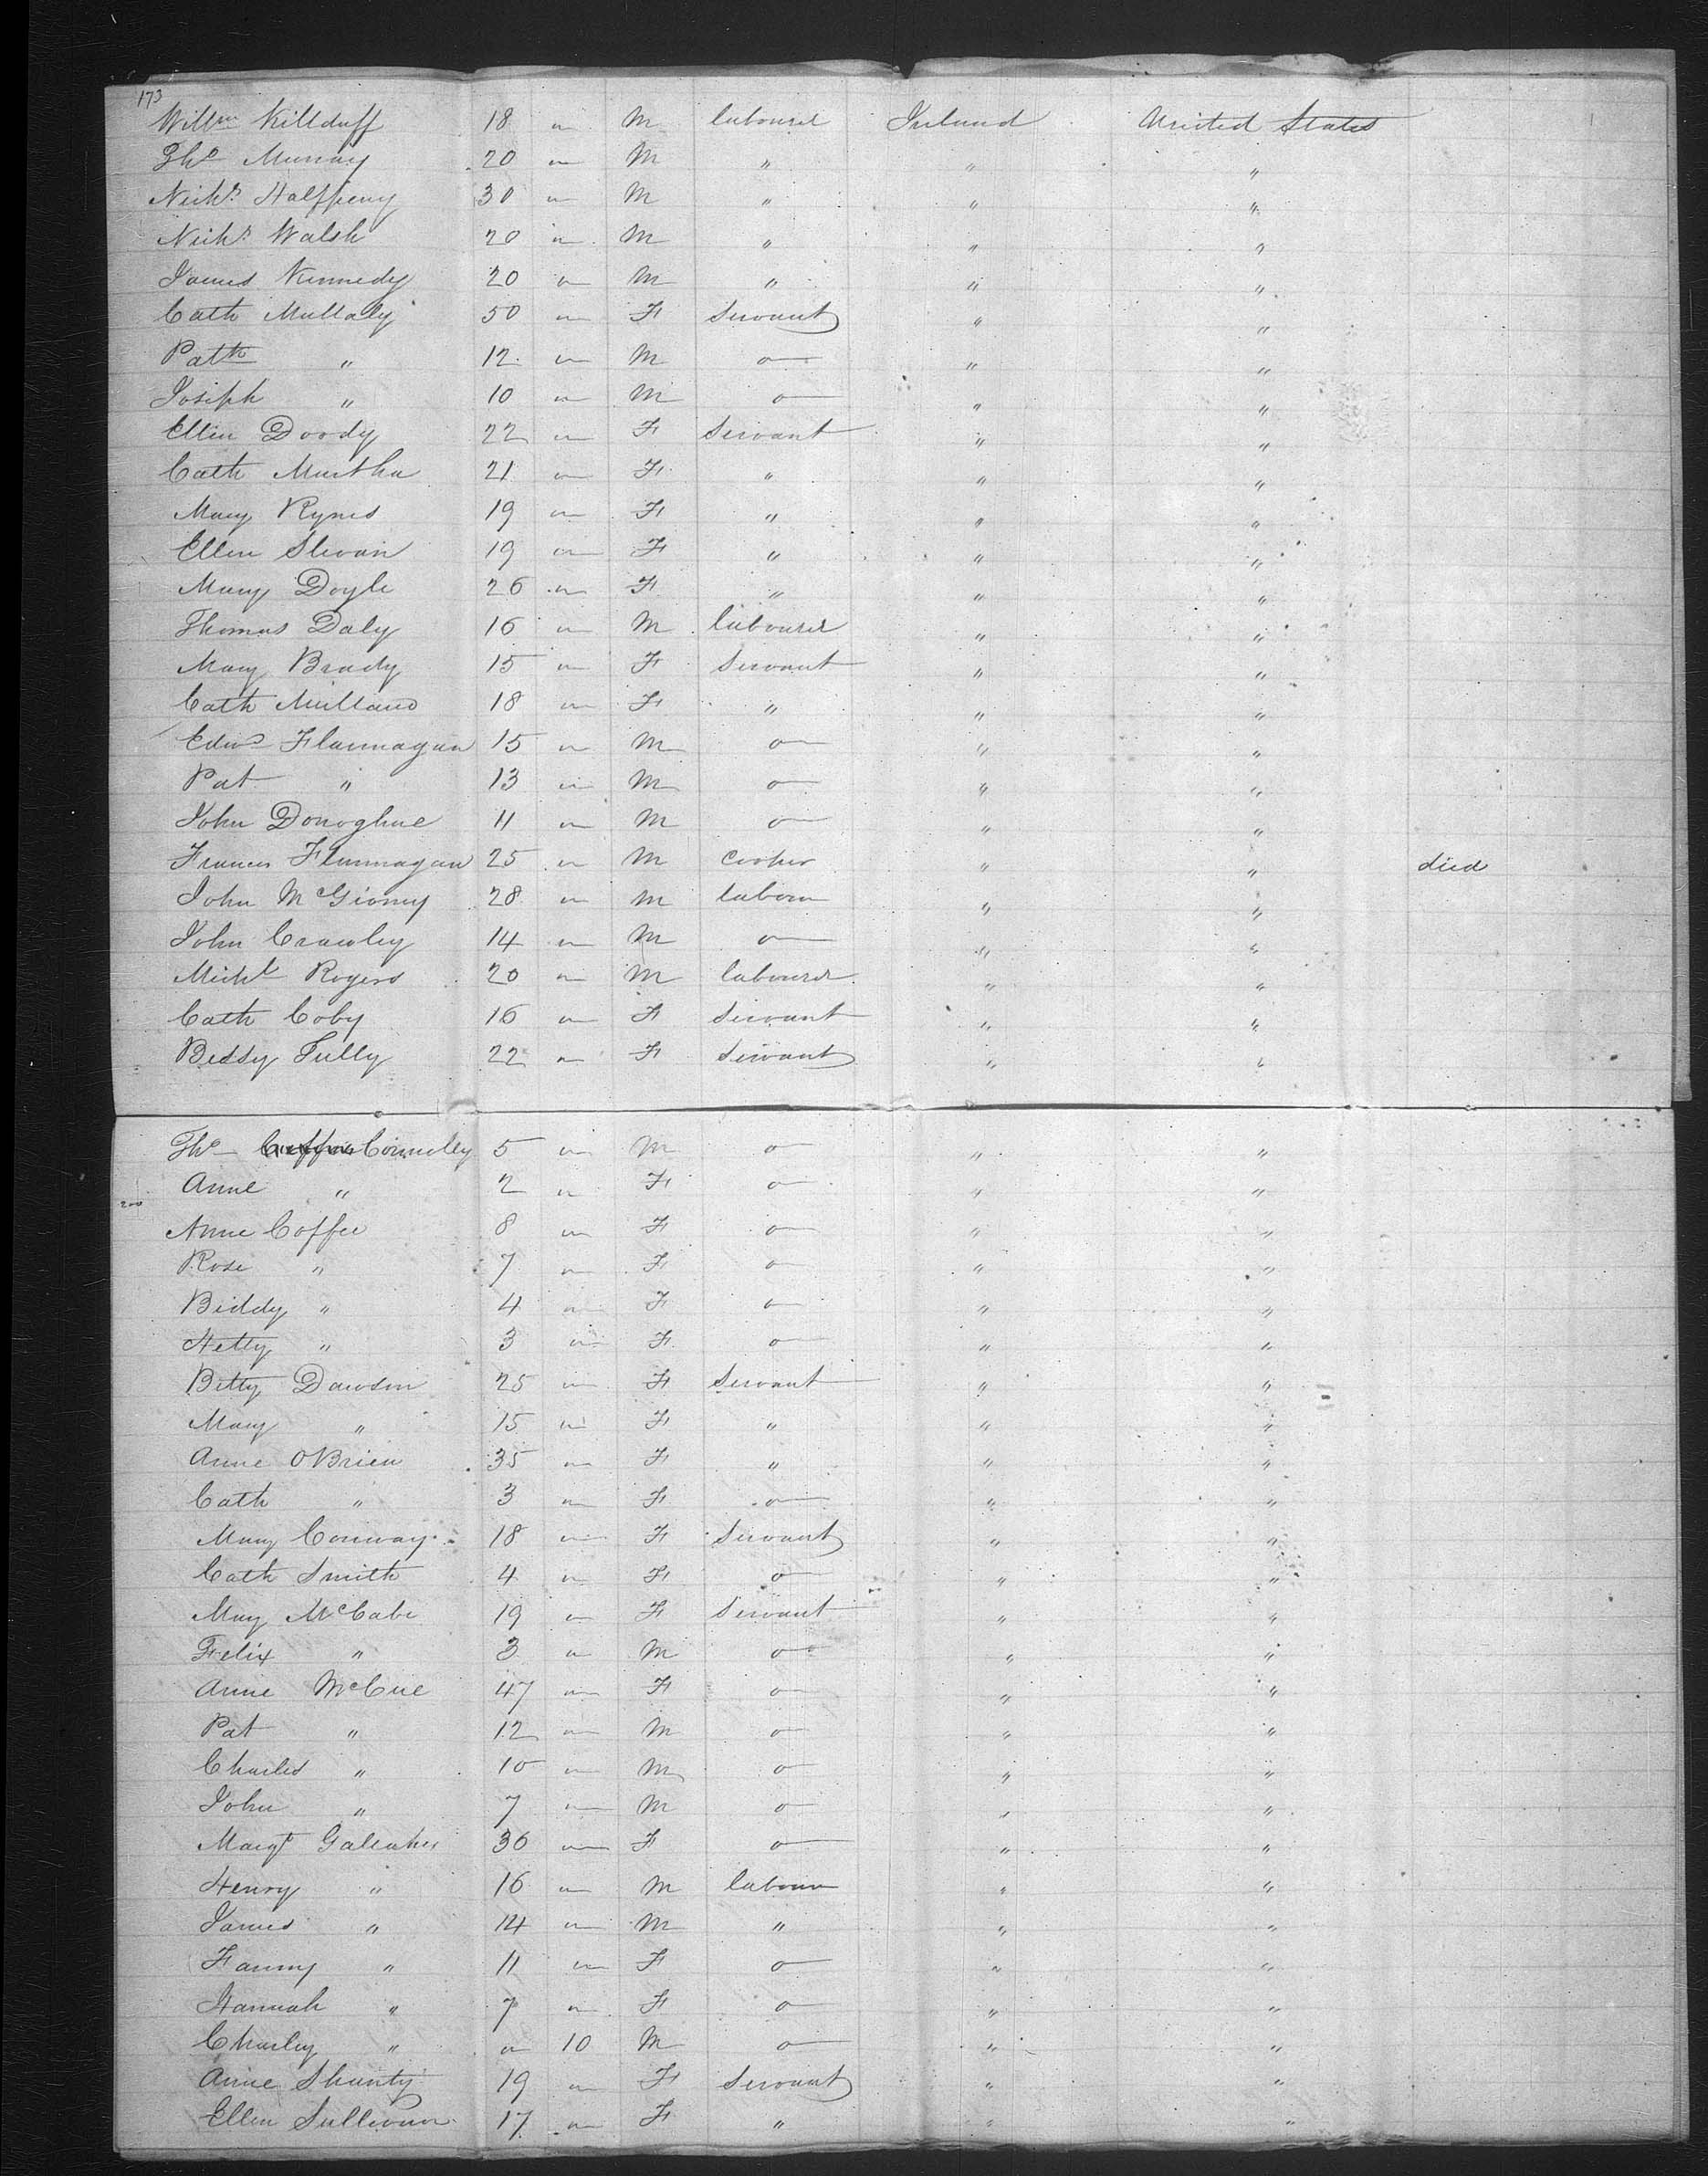 173
Willm Killduff 18 " M labourer Ireland United States
Ths Murray 20 " M " " "
Nichs Halfpeny 30 " M " " "
Nichs Walsh 20 " M " " "
James Kennedy 20 " M " " "
Cath Mullaly 50 " F Servant " "
Path " 12 " M o " "
Joseph " 10 " M o " "
Ellen Doody 22 " F Servant " "
Cath Murtha 21 " F " " "
Mary Rynes 19 " F " " "
Ellen Slevan 19 " F " " "
Mary Doyle 26 " F " " "
Thomas Daly 16 " M labourer " "
Mary Brady 15 " F Servant " "
Cath 18 " F " " "
Edwd Flannagan 15 " M o " "
Pat " 13 " M o " "
John Donoghue 11 " M o " "
Francis Flannagan 25 " M Cooper " " died
John 28 " M labour " "
John Crawley 14 " M o " "
Michl Rogers 20 " M labourer " "
Cath Coby 16 " F Servant " "
Bessy Tully 22 " F Servant " "
Ths Connolly 5 " M o " "
200 Anne " 2 " F o " "
Anne Coffee 8 " F o " "
Rose " 7 " F o " "
Biddy " 4 " F o " "
Hetty " 3 " F o " "
Betty Dawson 25 " F Servant " "
Mary " 15 " F " " "
Anne OBrien 35 " F " " "
Cath " 3 " F o " "
Mary Conway 18 " F Servant " "
Cath Smith 4 " F o " "
Mary McCabe 19 " F Servant " "
Felix " 3 " M o " "
Anne McCue 47 " F o " "
Pat " 12 " M o " "
Charles " 10 " M o " "
John " 7 " M o " "
Margt Galeaher 36 " F o " "
Henry " 16 " M labour " "
James " 14 " M " " "
Fanny " 11 " F o " "
Hannah " 7 " F o " "
Charley " " 10 M o " "
Anne Shanty 19 " F Servant " "
Ellen Sullivan 17 " F " " "